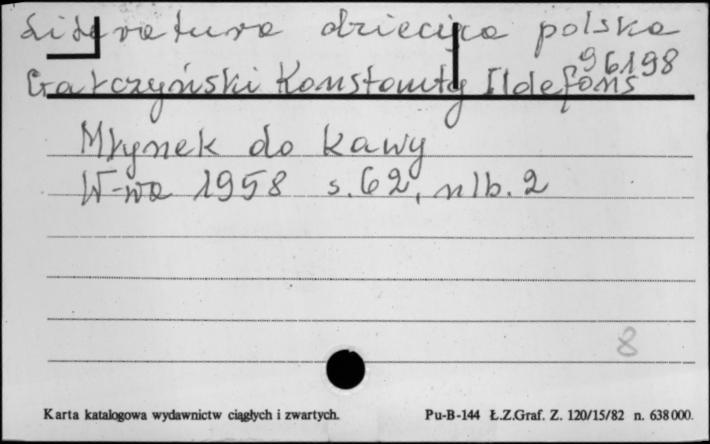 Literatura dziecięca polska
96198
Gałczyński Konstanty Ildefons
Młynek do kawy
W-wa 1958 s. 62, nlb. 2
8
Karta katalogowa wydawnictw ciągłych i zwartych. Pu-B-144 Ł.Z.Graf. Z. 120/15/82 n. 638 000.